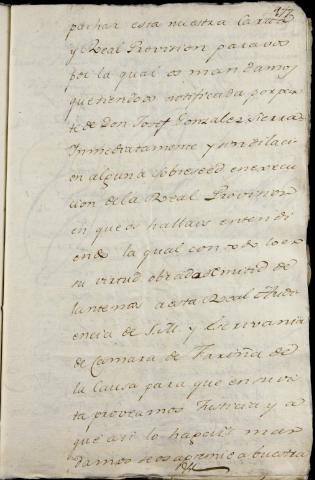 pachar esta nuestra Carta
y Real Provision para vos
por la qual os mandamos
que siendoos notificada por par
te de Don Josef Gonzalez Sierra
Inmediatamente y sin dilaci
on alguna Sobreseed en execu
cion de la Real Provision
en que os hallais entendi
endo la qual con todo lo en
su virtud obrado remitid de
lantenos a esta Real Audi
encia de Sill y Escrivania
de Camara de Fariña de
la Causa para que en su vis
ta proveamos Justicia y a
que asi lo hagais man
damos se os apremie a buestra